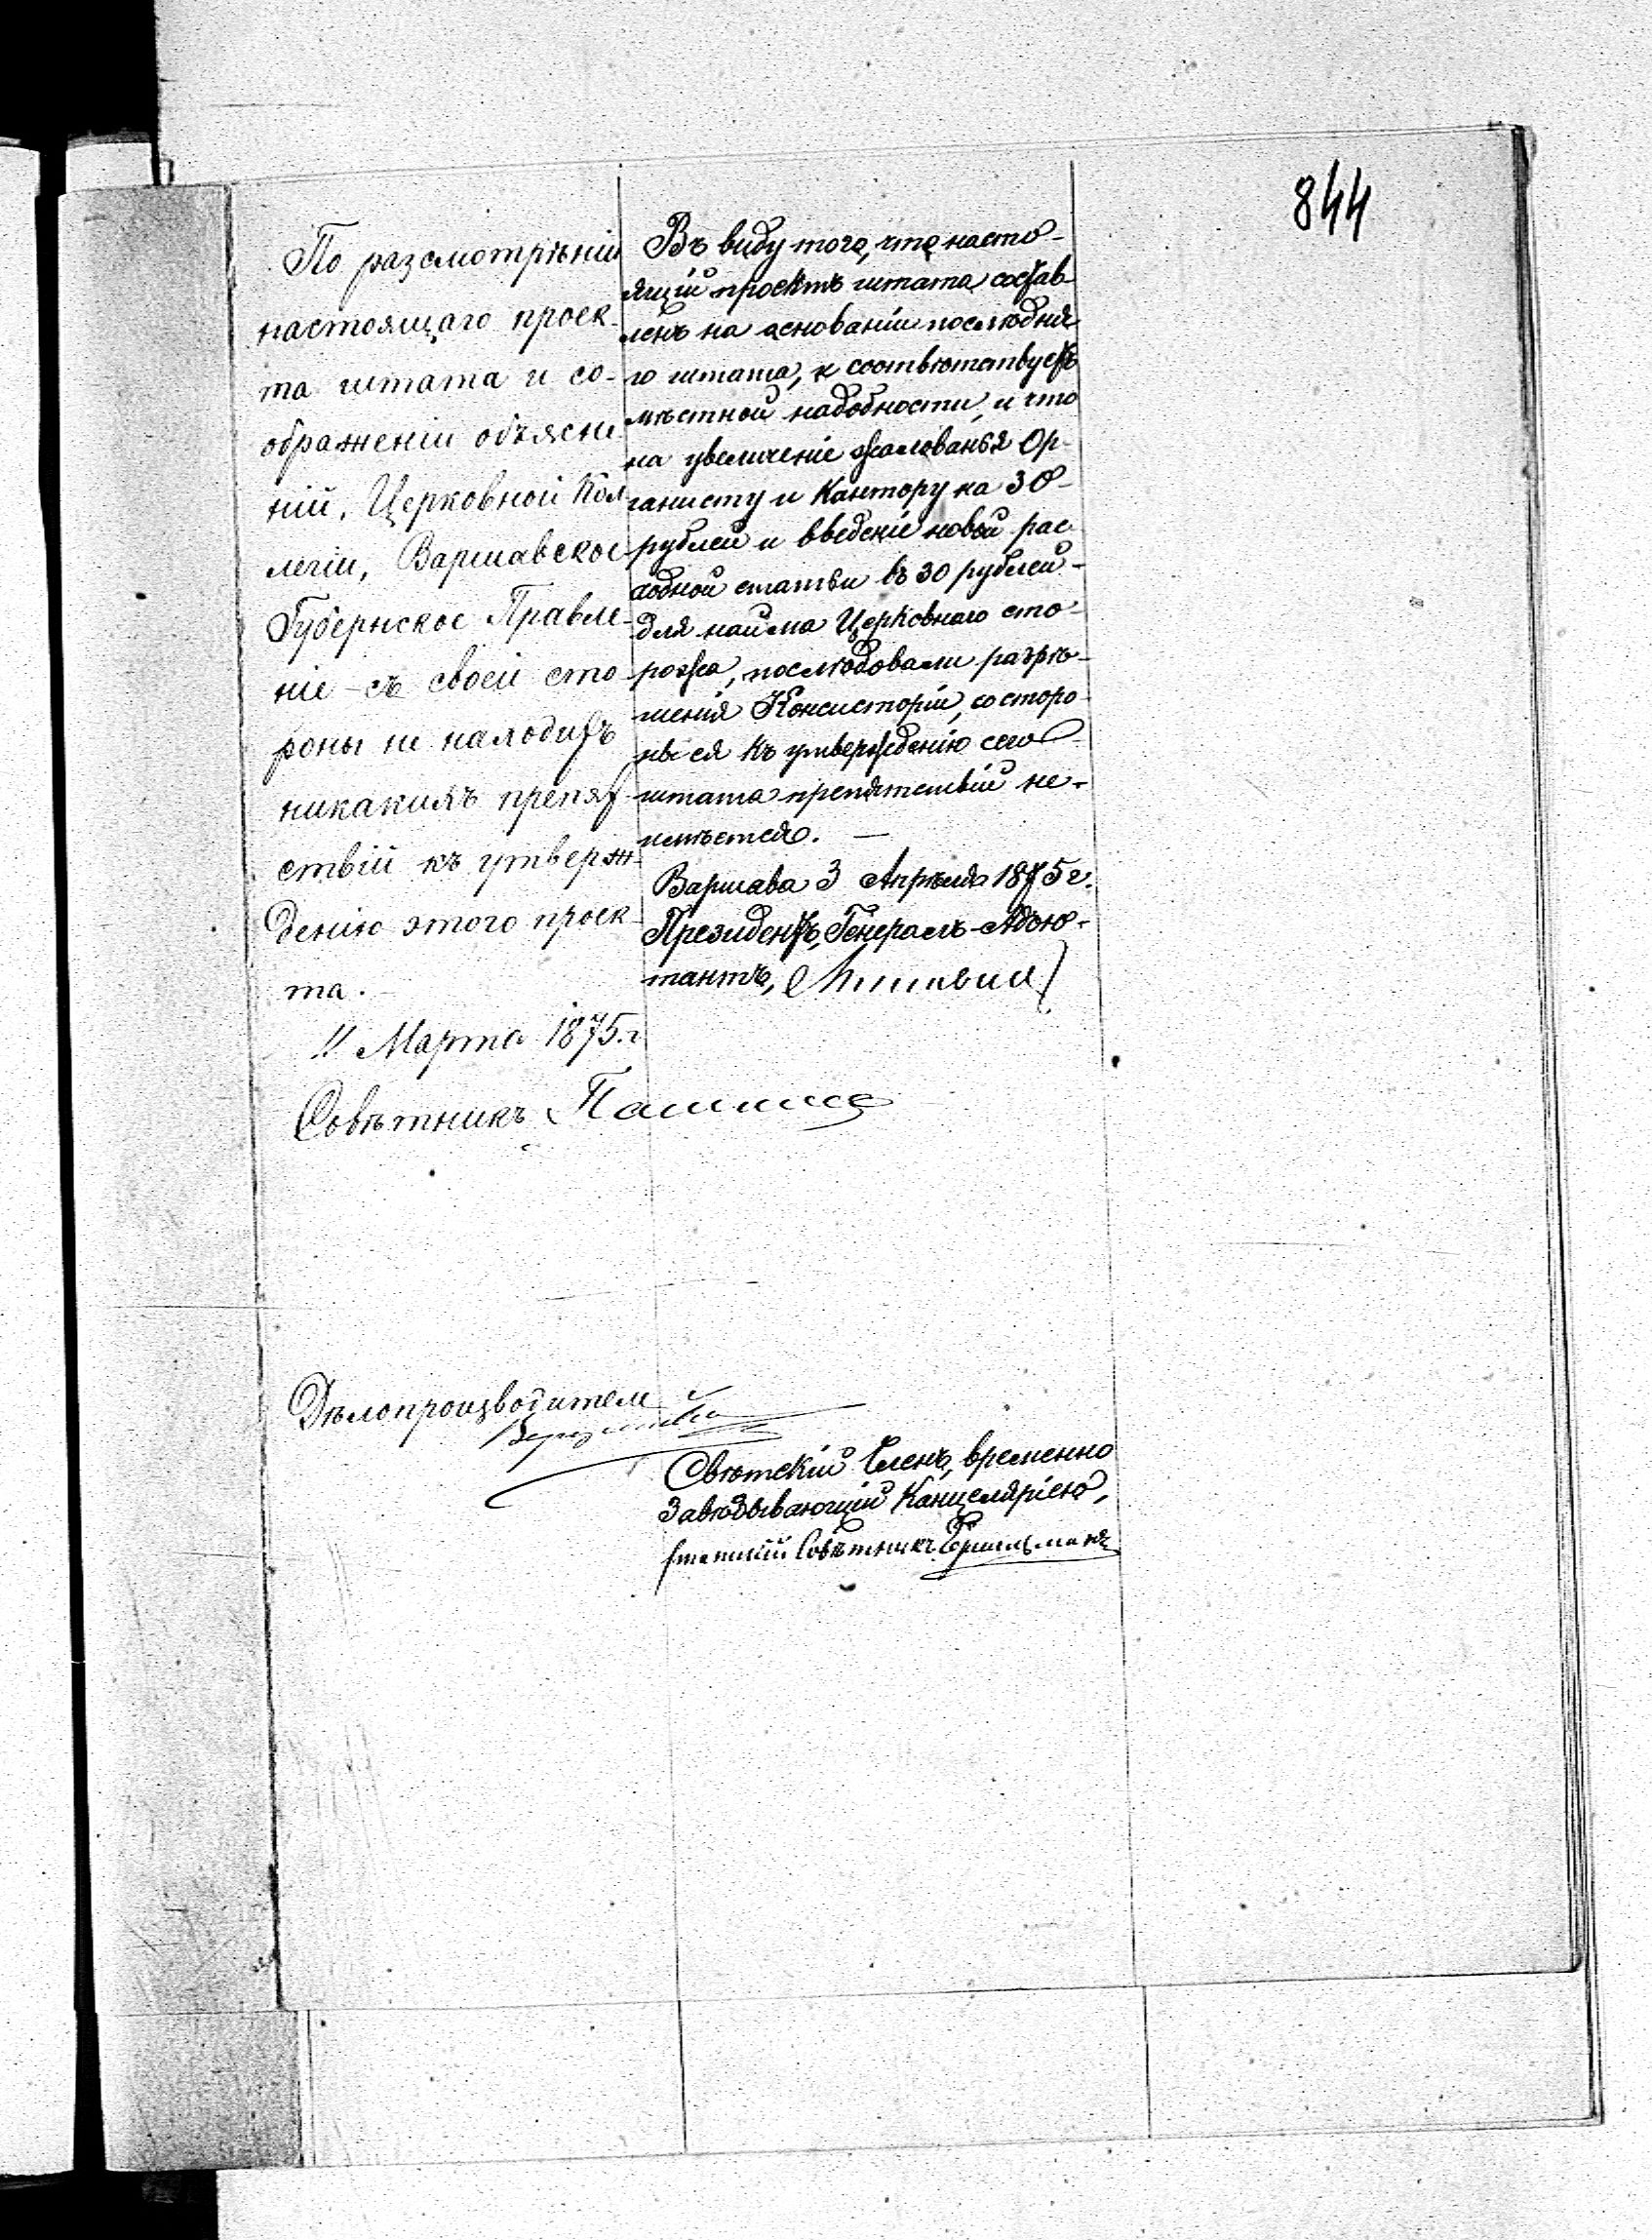 844
По разсмотрѣніи
настоящаго проек-
та штата и со-
ображеніи объясне-
ній, Церковной Кол-
легіи, Варшавское
Губернское Правле-
ніе съ своей сто-
роны не находитъ
никакихъ препят-
ствій къ утверж-
денію этого проек-
та.
11 Марта 1875.г.
Совѣтникъ
Дѣлопроизводитель
Въ виду того, что насто-
ящій проектъ штата состав-
ленъ на основаніи послѣдня-
го штата, и соотвѣтствуетъ
мѣстной надобности, и что
на увеличеніе жалованья Ор-
ганисту и Кантору на 30
рублей и введеніе новой рас-
ходной статьи въ 30 рублей
для найма Церковнаго сто-
рожа, послѣдовали разрѣ-
шенія Консисторіи, со сторо-
ны ея къ утвержденію сего
штата препятствій не-
имѣется.
Варшава 3 Апрѣля 1875 г.
Президентъ, Генералъ-Адъю-
тантъ,
Свѣтскій Членъ, временно
Завѣдывающій Канцеляріею,
Статскій Совѣтникъ